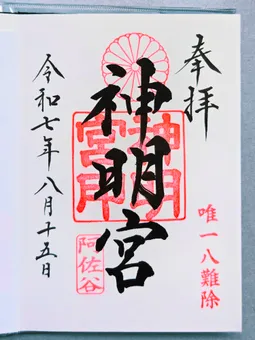 奉拝
唯一八難除
神明宮
神明宮印
阿佐谷
令和七年八月十五日